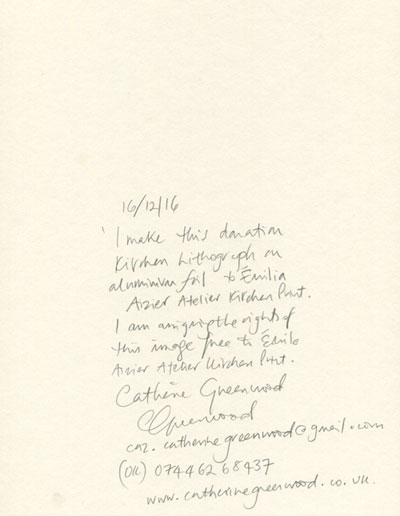 16/12/16
' I make this donation
Kitchen Lithograph on
aluminium foil to Émilia
Aizier Atelier Kitchen Print.
I am assigning the rights of
this image free to Émile
Aizier Atelier Kitchen Print.
Cathérine Greenwood
CGreenwood
caz.catherinegreenwood@gmail.com
074462 68437
www.catherinegreenwood.co.uk.